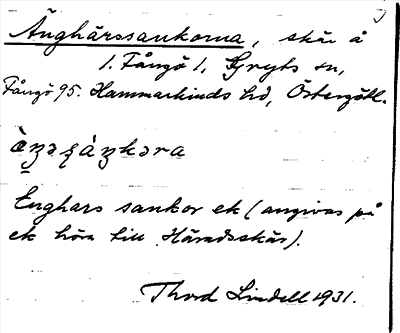 Änghärssankorna, skär å
1. Fångö 1, Gryts sn,
Fångö 95. Hammarkinds hd, Östergötl.
Enghars sankor ek (angivas på
ek höra till Häradsskär).
Thord Lindell 1931.